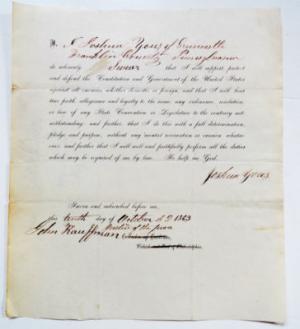 I, Joshua Yous of
Franklin County Pennsylvania
do solemnly Swear that I will support protect
and defend the Constitution and Government of the United States
against all enemies, whether domestic or foreign, and that I will bear
true faith, allegiance and loyalty to the same, any ordinance, resolution
or law of any State Convention or Legislature to the contrary not
withstanding, and further, that I do this with a full determination,
pledge and purpose, without any mental reservation or evasion whatso-
ever: and further that I will well and faithfully perform all the duties
which may be required of me by law. So help me God.
Joshua Yous
Sworn and subscribed before me,
this tenth day of October A D 1863
John Kauffman Justice of the peace